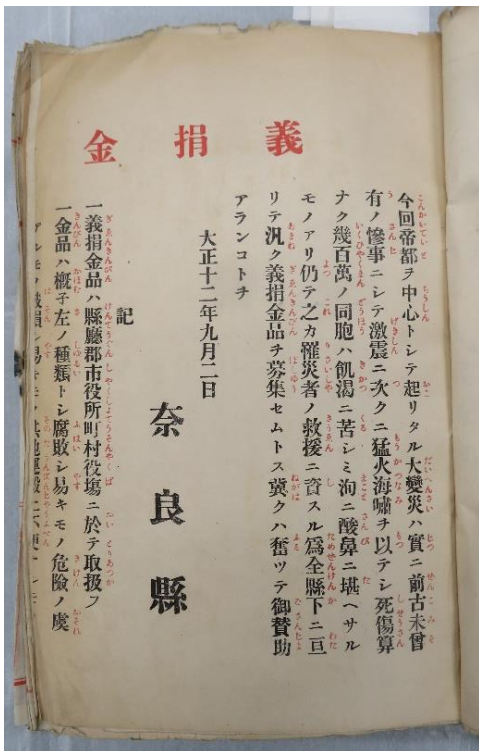 義捐金
今回帝都ヲ中心トシテ起リタル大變災ハ實ニ前古未曾
有ノ慘事ニシテ激震ニ次クニ猛火海嘯ヲ以テシ死傷算
ナク幾百萬ノ同胞ハ飢渴ニ苦シミ洵ニ酸鼻ニ堪ヘサル
モノアリ仍テ之カ罹災者ノ救援ニ資スル爲全縣下ニ亘
リテ汎ク義捐金品ヲ募集セムトス冀クハ奮ツテ御賛助
アランコトヲ
大正十二年九月二日
奈良縣
記
一義捐金品ハ縣廳郡市役所町村役塲ニ於テ取扱フ
一金品ハ概子左ノ種類トシ腐敗シ易キモノ危險ノ虞
アルモノ破損シ易キモノ其他運搬ニ不便ナル